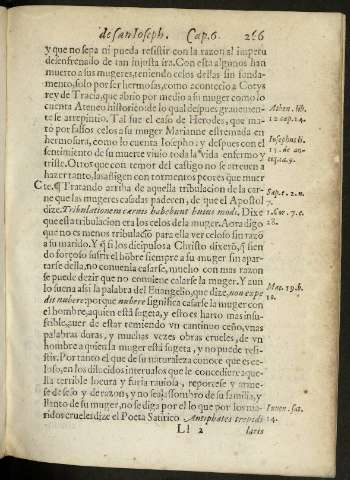 de san Ioseph. Cap. 6. 266
y que no sepa ni pueda resistir con la razon al impetu
desenfrenado de tan injusta ira. Con esta algunos han
muerto a sus mugeres, teniendo celos dellas sin funda-
mento, solo por ser hermosas, como acontecio a Cotys
rey de Tracia, que abrio por medio a su muger como lo
cuenta Ateneo historico de lo qual despues grauemen-
te se arrepintio. Tal fue el caso de Herodes, que ma-
to por falsos celos a su muger Marianne estremada en
hermosura, como lo cuenta Iosepho: y despues con el
sentimiento de su muerte viuio toda la vida enfermo y
triste. Otros que con temor del castigo no se atreuen a
hazer tanto, las afligen con tormentos peores que muer
te. ¶ Tratando arriba de aquella tribulacion de la car-
ne que las mugeres casadas padecen, de que el Apostol
dize. Tribulationem carnis habebunt huius modi. Dixe
que esta tribulacion era los celos de la muger. Aora digo
que no es menos tribulacion para ella ver celoso sin razõ
a su marido. Y q̃ si los dicipulos a Christo dixerõ, q̃ sien
do forçoso sufrir el hõbre siempre a su muger sin apar-
tarse della, no conuenia casarse, mucho con mas razon
se puede dezir que no conuiene casarse la muger. Y aun
lo suena assi la palabra del Euangelio, que dize, non expe
dit nubere: por que nubere significa casarse la muger con
el hombre, a quien està sugeta, y esto es harto mas insu-
frible, auer de estar temiendo vn continuo ceño, vnas
palabras duras, y muchas vezes obras crueles, de vn
hombre a quien la muger està sugeta, y no puede resi-
stir. Por tanto el que de su naturaleza conoce que es ce-
loso, en los dilucidos interualos que le concediere aque-
lla terrible locura y furia rauiosa, reportese y arme-
se de seso y de razon, y no sea assombro de su familia, y
llanto de su muger, no se diga por el lo que por los ma-
ridos crueles dize el Poeta Satirico. Antiphates trepidi
Ll 2 laris
Athen. lib.
12. cap. 14.
Iosephus li.
15. de an-
Sap. c. 2. n.
7.
1. Cor. 7. c.
28.
Mat. 19. b.
10.
Iuuen. sat.
14.